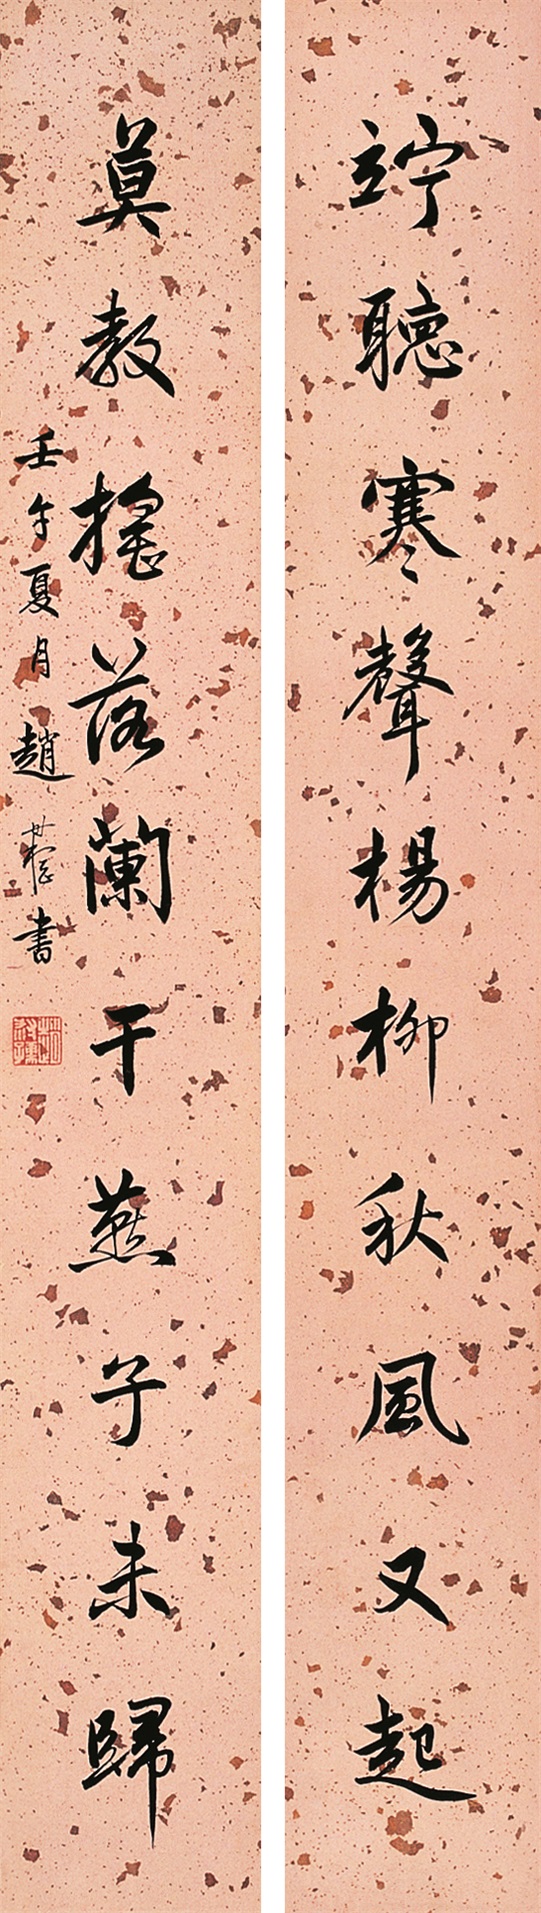 竚聽寒聲楊柳秋風又起
莫教搖落蘭干燕子未歸
壬午夏月趙書